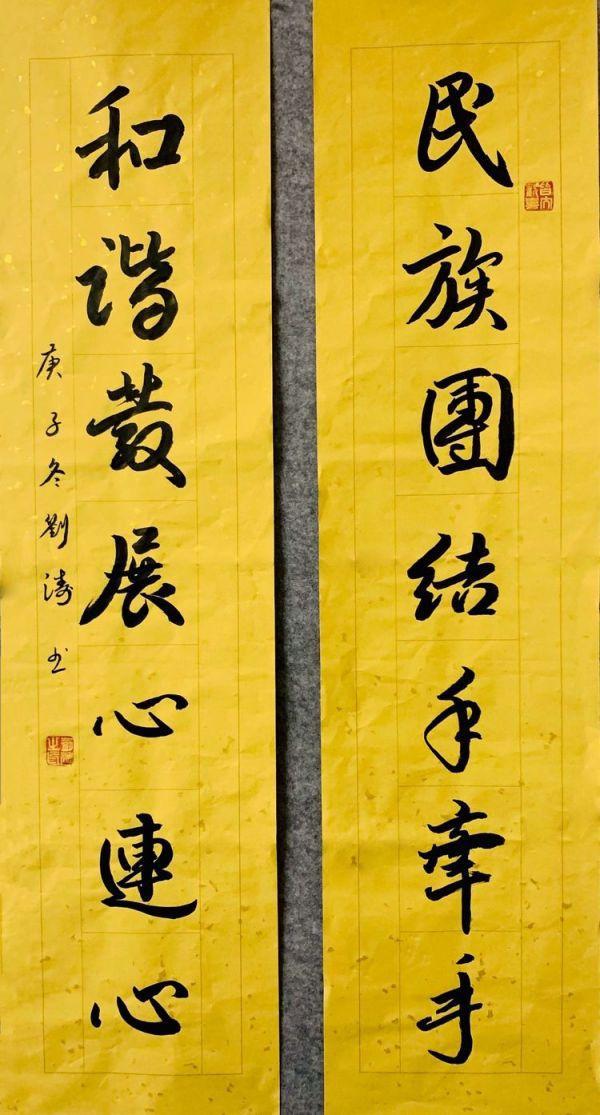 民族團結手牽手
和谐發展心連心
庚子冬劉涛书